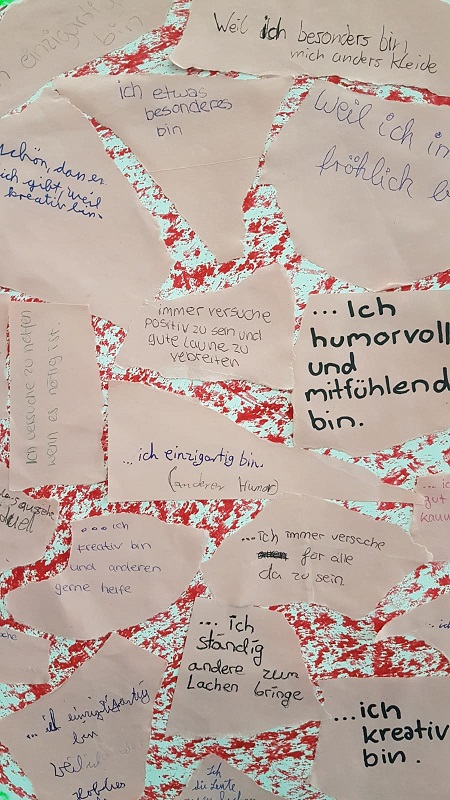 einzigartig
bin
Weil ich besonders bin,
mich anders kleide
ich etwas
besonderes
bin
weil ich
fröhlich
schön, dass es
ich gibt, weil
kreativ bin.
immer versuche
positiv zu sein und
gute Laune zu
vebreiten
... Ich
humorvoll
und
mitfühlend
bin.
Ich versuche zu helfen
wenn es nötig ist.
... ich einzigartig bin.
(anderer Humor)
gut
... ich
kreativ bin
und anderen
gerne helfe
...ich immer versuche
für alle
da zu sein
... ich
ständig
andere zum
Lachen bringe
... ich einzigartig
bin
weil ich
...ich
kreativ
bin.
Ich
die Leute